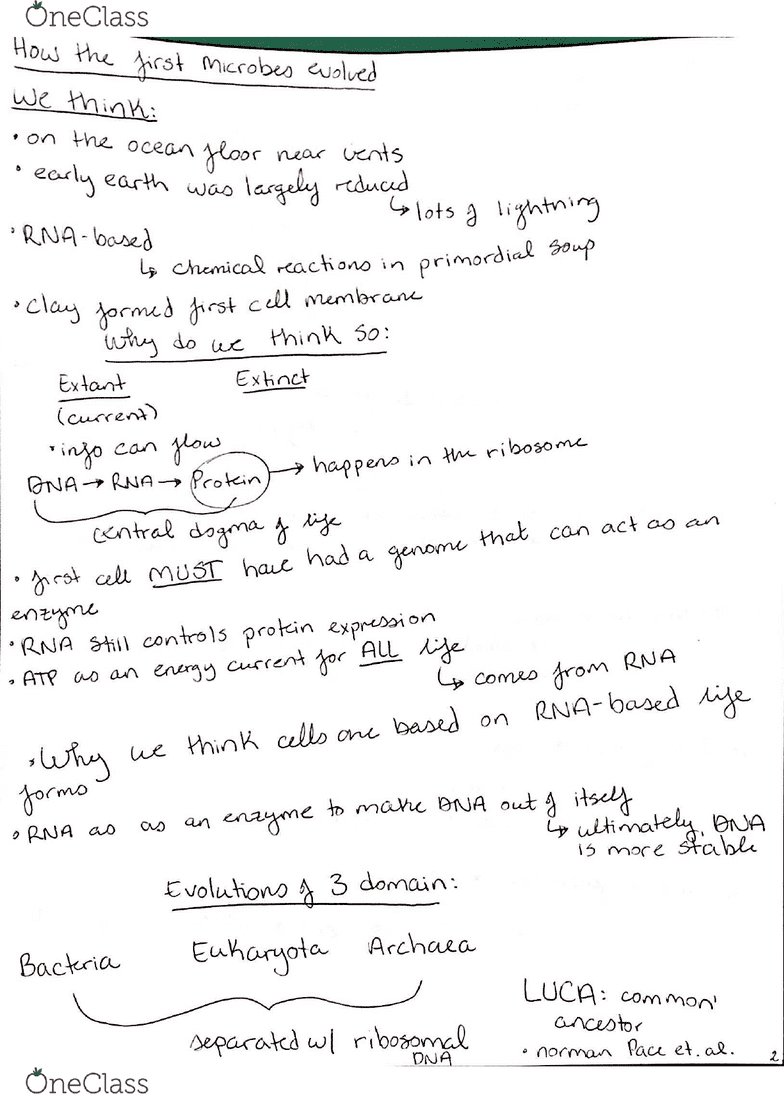 OneClass
How the first Microbes evolved
We think:
• on the ocean floor near vents
• early earth was largely reduced
↳ lots of lightning
• RNA-based
↳ chemical reactions in primordial soup
• clay formed first cell membrane
Why do we think so:
Extant Extinct
(current)
• info can flow
DNA → RNA → Protein → happens in the ribosome
central dogma of life
• first cell MUST have had a genome that can act as an
enzyme
• RNA still controls protein expression
• ATP as an energy current for ALL life
↳ comes from RNA
• Why we think cells are based on RNA-based life
forms
• RNA as as an enzyme to make DNA out of itself
↳ ultimately, DNA
is more stable
Evolutions of 3 domain:
Bacteria Eukaryota Archaea
separated w/ ribosomal
DNA
LUCA: common
ancestor
• norman Pace et. al.
2
OneClass